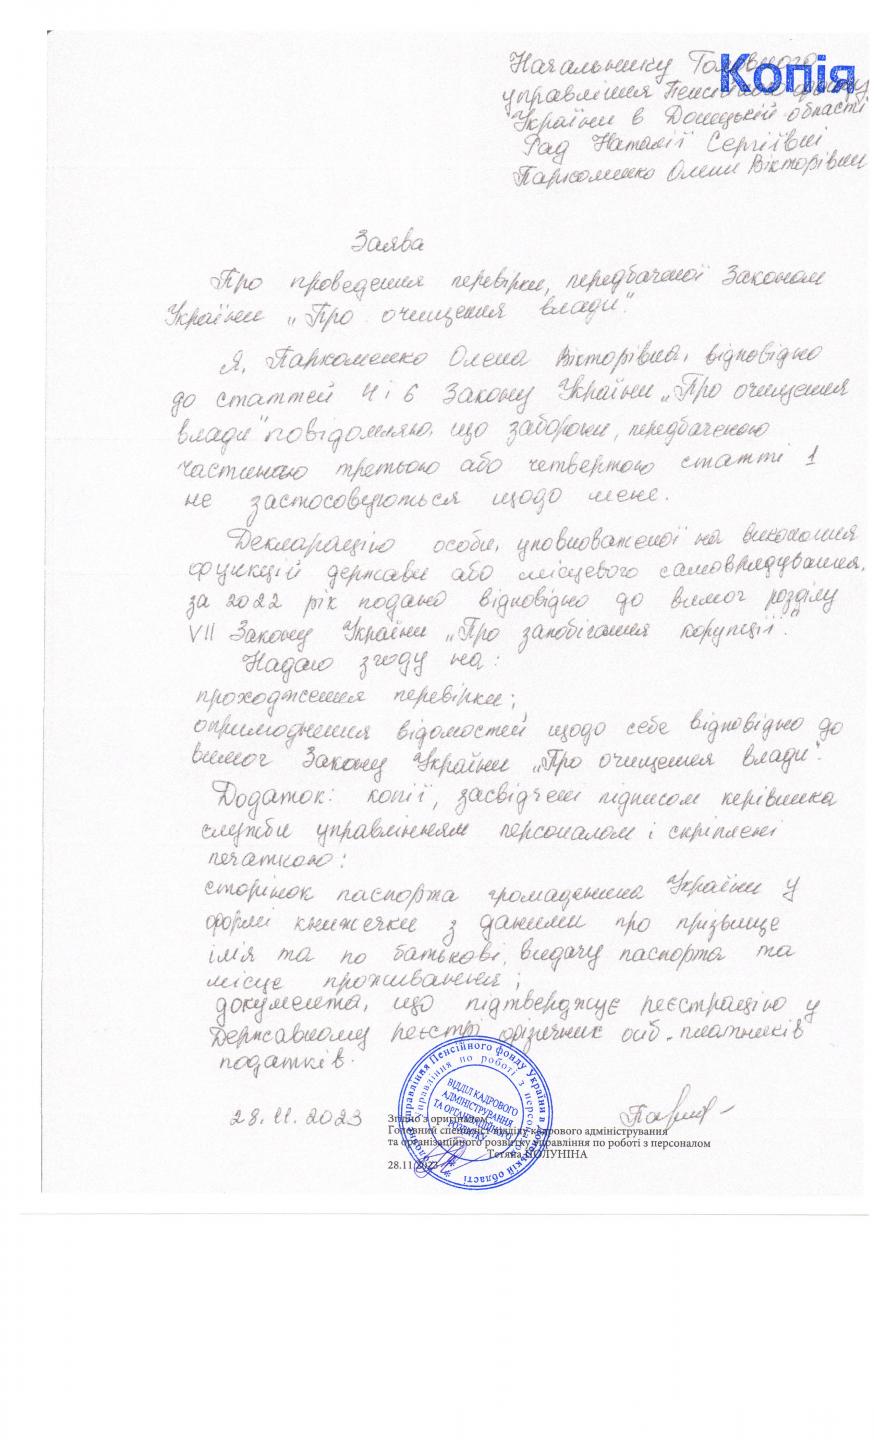 Копія
Начальнику Головного
управління Пенсійного фонду
України в Донецькій області
Рад Наталії Сергіївні
Пархоменко Олени Вікторівни
Заява
Про проведення перевірки, передбаченої Законом
України „Про очищення влади".
Я, Пархоменко Олена Вікторівна, відповідно
до статтей 4 і 6 Закону України „Про очищення
влади" повідомляю, що заборони, передбаченою
частиною третьою або четвертою статті 1
не застосовуються щодо мене.
Декларацію особи, уповноваженої на виконання
функцій держави або місцевого самоврядування,
за 2022 рік подано відповідно до вимог розділу
VII Закону України „Про запобігання корупції".
Надаю згоду на:
проходження перевірки;
оприлюднення відомостей щодо себе відповідно до
вимог Закону України „Про очищення влади".
Додаток: копії, засвідчені підписом керівника
служби управлінням персоналом і скріплені
печаткою:
сторінок паспорта громадянина України у
формі книжечки з даними про прізвище
ім'я та по батькові, видачу паспорта та
місце проживання;
документа, що підтверджує реєстрацію у
Державному реєстрі фізичних осіб-платників
податків.
28.11.2023
Згідно з оригіналом
Головний спеціаліст відділу кадрового адміністрування
та організаційного розвитку управління по роботі з персоналом
Тетяна ПОЛУНІНА
28.11.2023
управління Пенсійного фонду України в Донецькій області
управління по роботі з персоналом
ВІДДІЛ КАДРОВОГО
АДМІНІСТРУВАННЯ
ТА ОРГАНІЗАЦІЙНОГО
РОЗВИТКУ